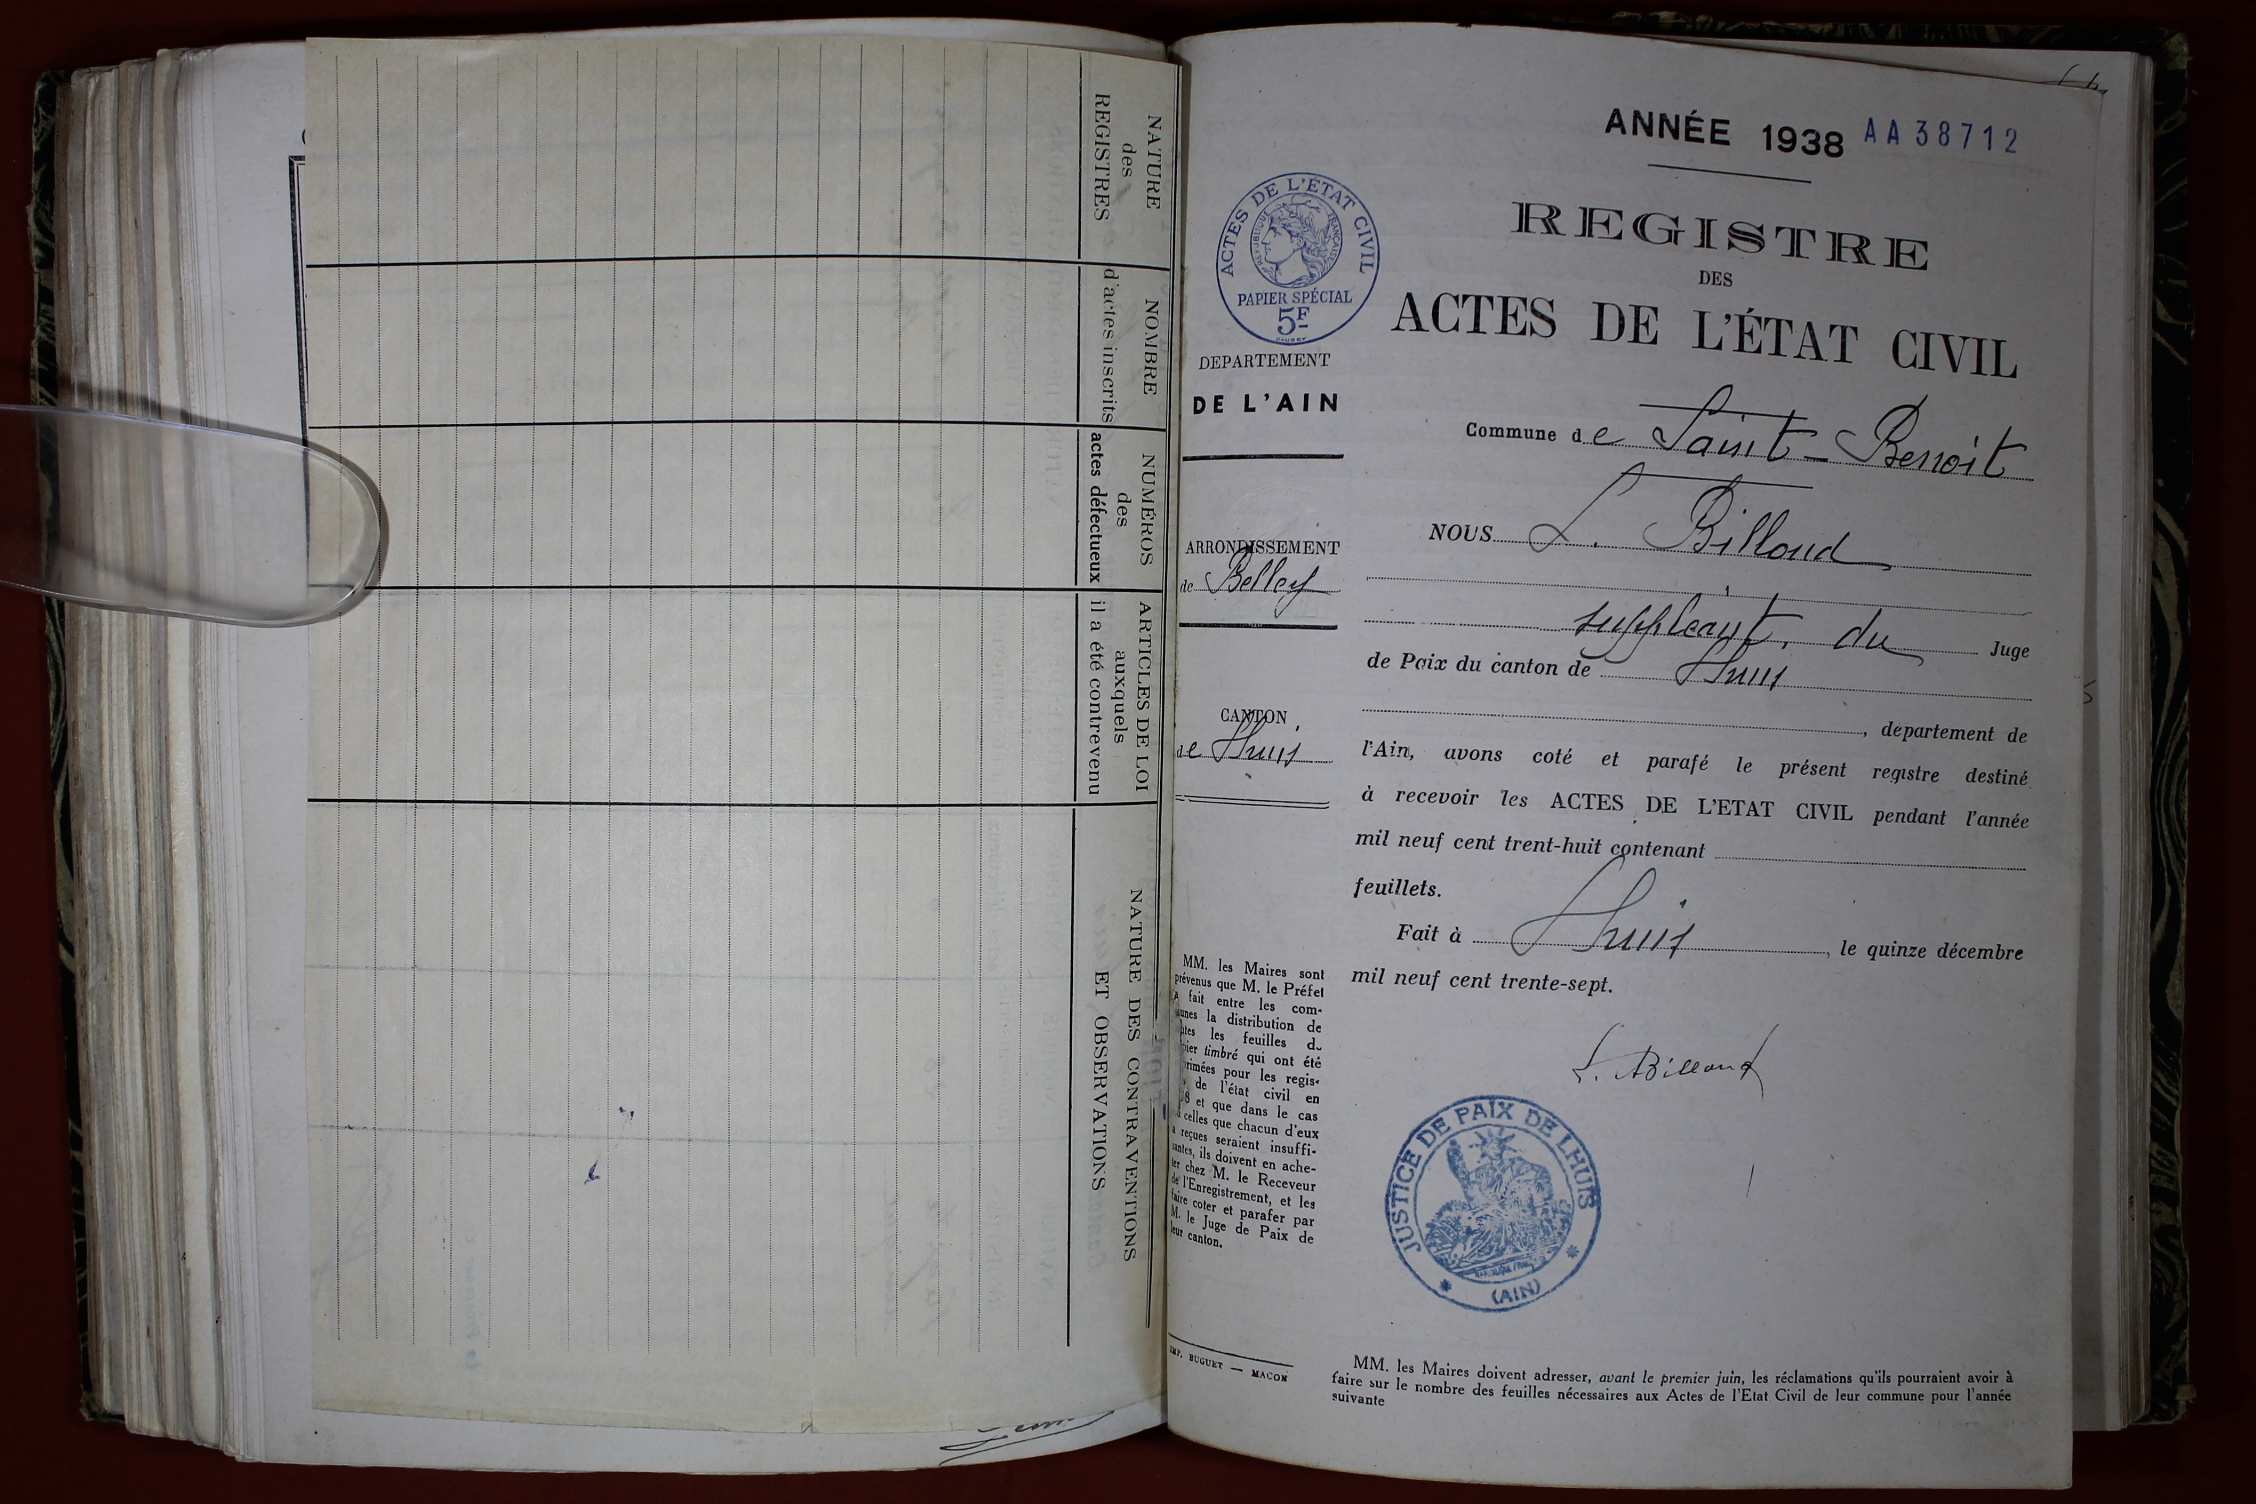 NATURE
des
REGISTRES
NOMBRE
d'actes inscrits
NUMÉROS
des
actes défectueux
ARTICLES DE LOI
auxquels
il a été contrevenu
NATURE DES CONTRAVENTIONS
ET OBSERVATIONS
ANNÉE 1938 AA38712
REGISTRE
DES
ACTES DE L'ÉTAT CIVIL
ACTES DE L'ÉTAT CIVIL
RÉPUBLIQUE FRANÇAISE
PAPIER SPÉCIAL
5F
DEPARTEMENT
DE L'AIN
ARRONDISSEMENT
de Belley
CANTON
de Lhuis
MM. les Maires sont
prévenus que M. le Préfet
a fait entre les com-
munes la distribution de
toutes les feuilles du
papier timbré qui ont été
imprimées pour les regis-
de l'état civil en
et que dans le cas
celles que chacun d'eux
a reçues seraient insuffi-
santes, ils doivent en ache-
ter chez M. le Receveur
de l'Enregistrement, et les
faire coter et parafer par
M. le Juge de Paix de
leur canton.
IMP. BUGUET — MACON
Commune de Saint-Benoit
NOUS L. Billoud
suppléant, du Juge
de Paix du canton de Lhuis
, departement de
l'Ain, avons coté et parafé le présent registre destiné
à recevoir les ACTES DE L'ETAT CIVIL pendant l'année
mil neuf cent trent-huit contenant
feuillets.
Fait à Lhuis, le quinze décembre
mil neuf cent trente-sept.
L. Billoud
JUSTICE DE PAIX DE LHUIS
(AIN)
MM. les Maires doivent adresser, avant le premier juin, les réclamations qu'ils pourraient avoir à
faire sur le nombre des feuilles nécessaires aux Actes de l'Etat Civil de leur commune pour l'année
suivante